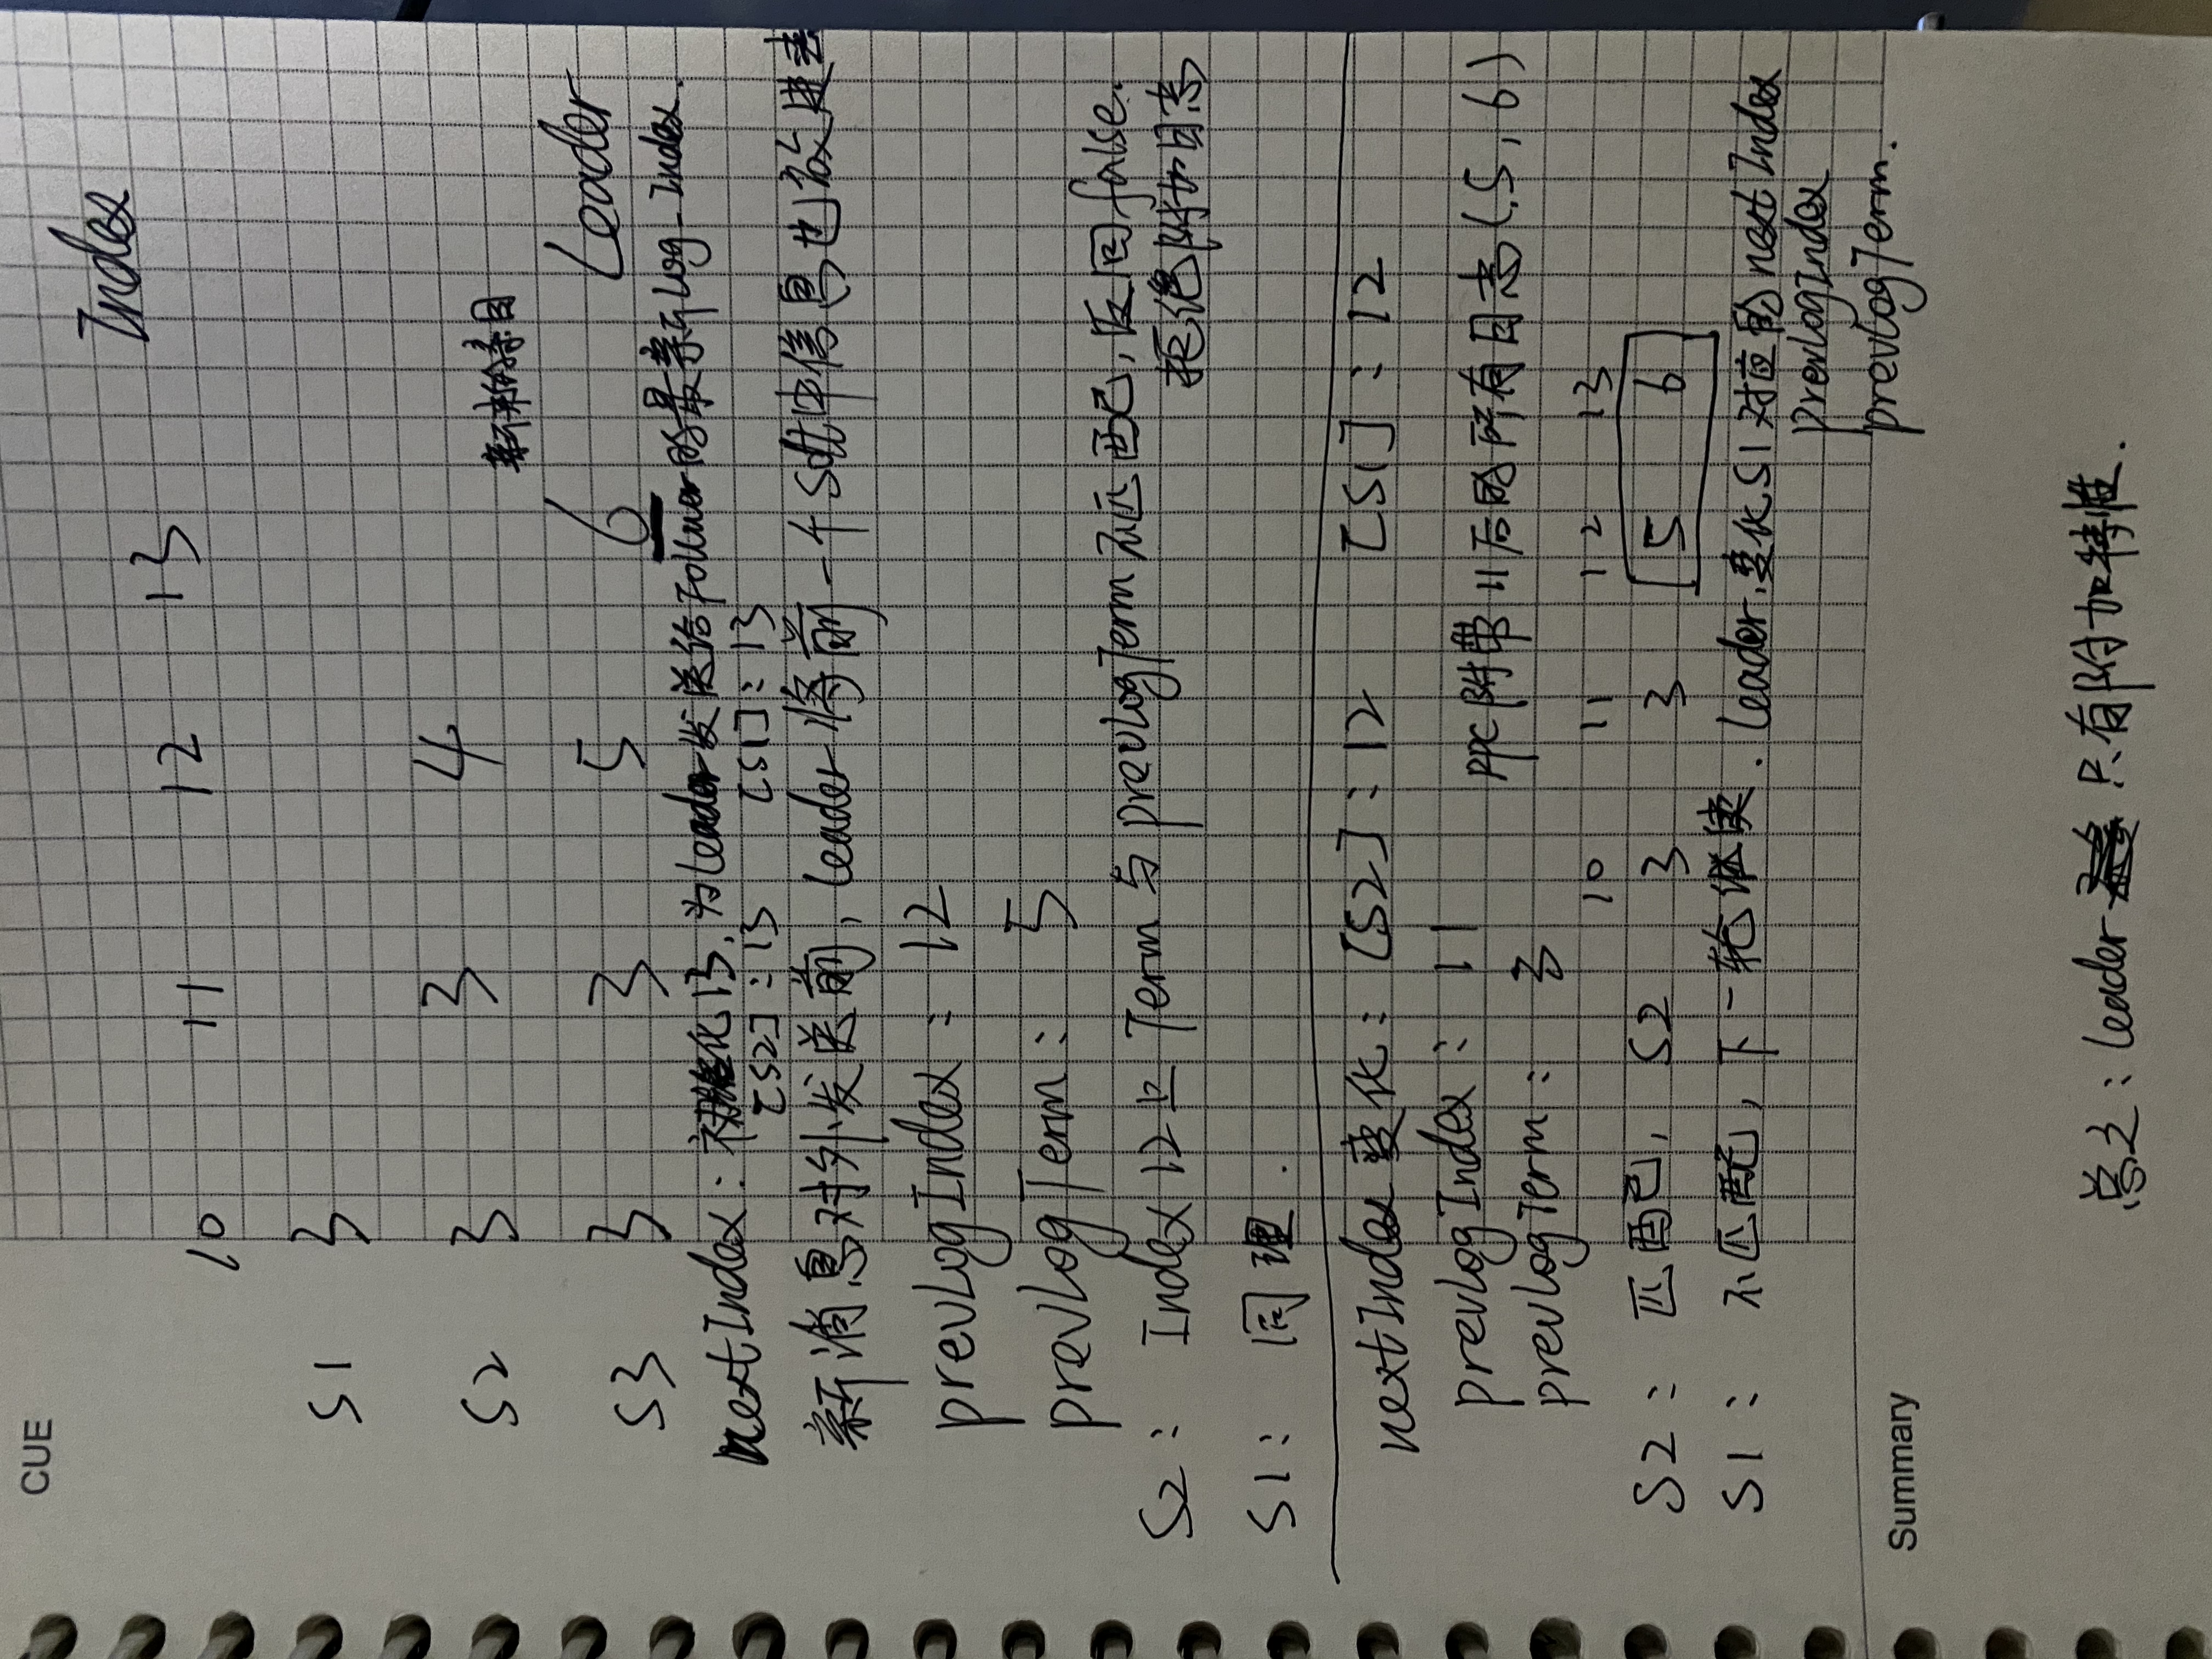 CUE
Index
10 11 12 13
S1 3
S2 3 3 4
新来的条目
S3 3 3 5 6 Leader
nextIndex: 初始化13, 为leader发送给Follower的最新log-Index.
[S2]:13 [S1]:13
新消息对外发送前, leader将前一个Solt中信息也放进去
prevLogIndex: 12
prevLogTerm: 5
S2: Index 12上Term与prevLogTerm不匹配, 返回false.
拒绝附加日志
S1: 同理.
nextIndex变化: [S2]:12 [S1]:12
prevLogIndex: 11
RPC附带11后的所有日志(5, 6)
prevLogTerm: 3
10 11 12 13
S2: 匹配, S2 3 3 5 6
S1: 不匹配, 下一轮继续. leader变化S1对应的nextIndex
prevLogIndex
prevLogTerm.
Summary
总之: leader 只有附加特性.